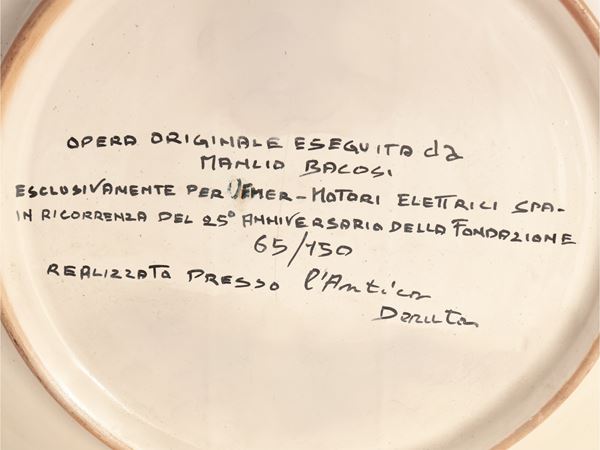 OPERA ORIGINALE ESEGUITA da
MANLIO BACOSI
ESCLUSIVAMENTE PER UEMER-MOTORI ELETTRICI SPA-
IN RICORRENZA DEL 25° ANNIVERSARIO DELLA FONDAZIONE
65/150
REALIZZATO PRESSO l'Antica
Deruta